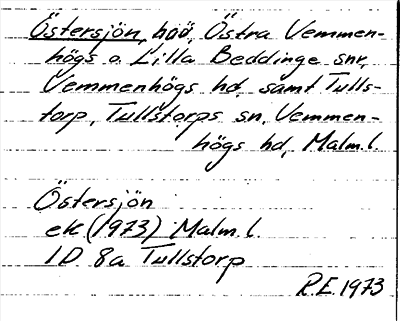 Östersjön, haö, Östra Vemmen-
högs o. Lilla Beddinge snr,
Vemmenhögs hd, samt Tulls-
torp, Tullstorps sn, Vemmen-
högs hd, Malm.l.
Östersjön
ek (1973) Malm.l.
1D 8a Tullstorp
R.E. 1973